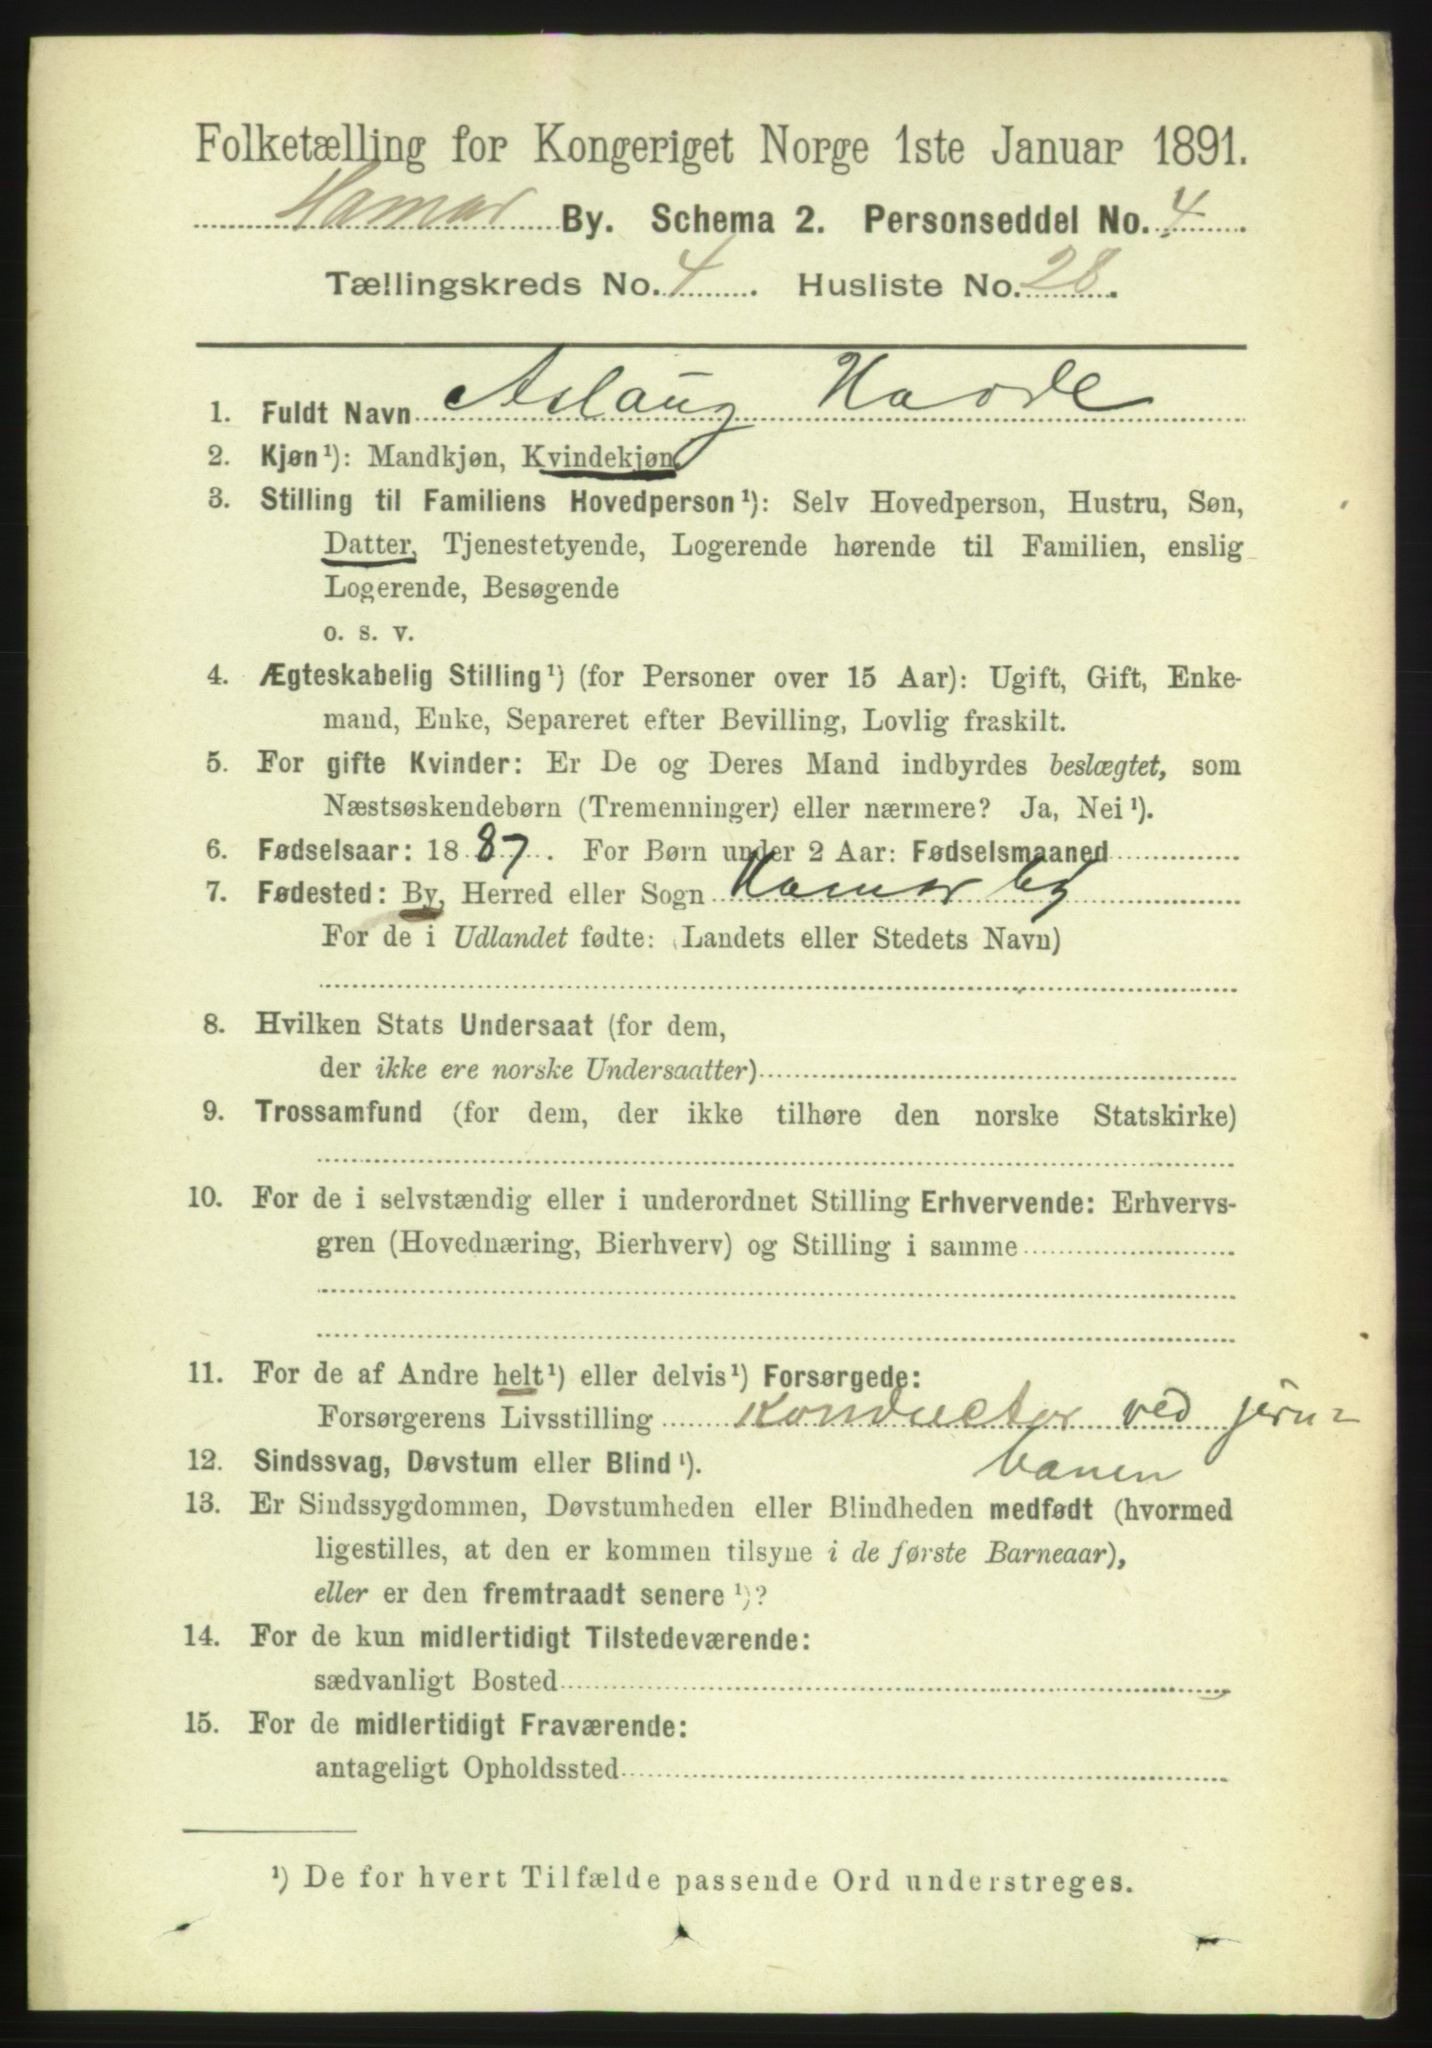 Folketælling for Kongeriget Norge 1ste Januar 1891.
Hamar By. Schema 2. Personseddel No. 4.
Tællingskreds No. 4. Husliste No. 28.
1. Fuldt Navn Aslaug
2. Kjøn¹): Mandkjøn, Kvindekjøn.
3. Stilling til Familiens Hovedperson¹): Selv Hovedperson, Hustru, Søn,
Datter, Tjenestetyende, Logerende hørende til Familien, enslig
Logerende, Besøgende
o. s. v.
4. Ægteskabelig Stilling¹) (for Personer over 15 Aar): Ugift, Gift, Enke-
mand, Enke, Separeret efter Bevilling, Lovlig fraskilt.
5. For gifte Kvinder: Er De og Deres Mand indbyrdes beslægtet, som
Næstsøskendebørn (Tremenninger) eller nærmere? Ja, Nei¹).
6. Fødselsaar: 1887. For Børn under 2 Aar: Fødselsmaaned
7. Fødested: By, Herred eller Sogn Hamar by
For de i Udlandet fødte: (Landets eller Stedets Navn)
8. Hvilken Stats Undersaat (for dem,
der ikke ere norske Undersaatter)
9. Trossamfund (for dem, der ikke tilhøre den norske Statskirke)
10. For de i selvstændig eller i underordnet Stilling Erhvervende: Erhvervs-
gren (Hovednæring, Bierhverv) og Stilling i samme
11. For de af Andre helt¹) eller delvis¹) Forsørgede:
Forsørgerens Livsstilling Konductør ved jern=
banen
12. Sindssvag, Døvstum eller Blind¹).
13. Er Sindssygdommen, Døvstumheden eller Blindheden medfødt (hvormed
ligestilles, at den er kommen tilsyne i de første Barneaar),
eller er den fremtraadt senere¹)?
14. For de kun midlertidigt Tilstedeværende:
sædvanligt Bosted
15. For de midlertidigt Fraværende:
antageligt Opholdssted
¹) De for hvert Tilfælde passende Ord understreges.